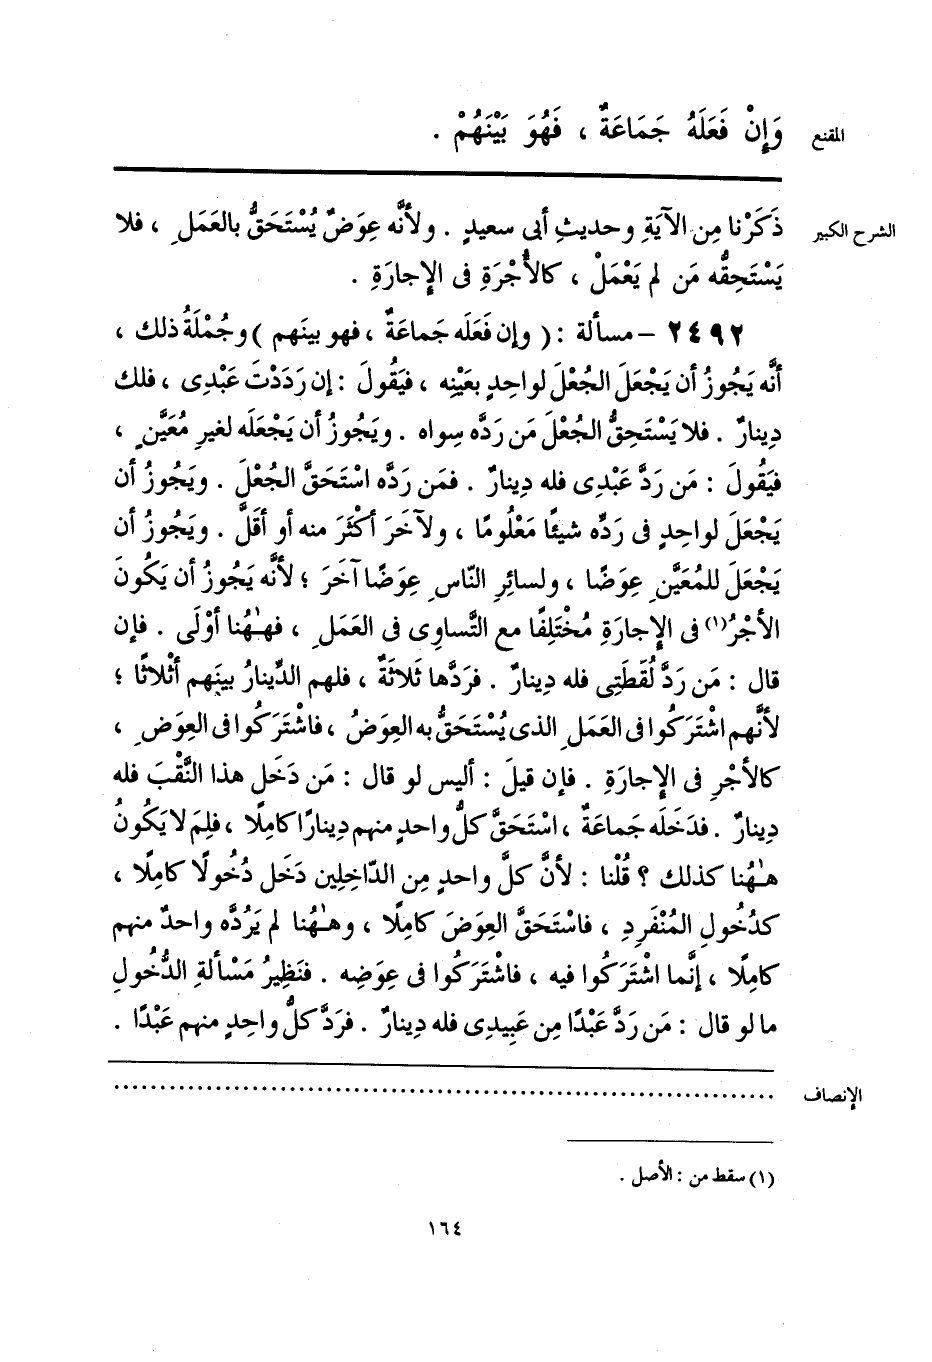 المقنع وَإِنْ فَعَلَهُ جَمَاعَةٌ ، فَهُوَ بَيْنَهُمْ .
الشرح الكبير ذَكَرْنا مِن الآيَةِ وحديثِ أبى سعيدٍ . ولأنَّه عِوَضٌ يُسْتَحَقُّ بالعَمَلِ ، فلا
يَسْتَحِقُّه مَن لم يَعْمَلْ ، كالأُجْرَةِ فى الإِجارَةِ .
٢٤٩٢ – مسألة : ( وإن فَعَلَه جَماعَةٌ ، فهو بينَهم ) وجُمْلَةُ ذلك ،
أنَّه يَجُوزُ أن يَجْعَلَ الجُعْلَ لواحِدٍ بعَيْنِه ، فيَقُولَ : إن رَدَدْتَ عَبْدِى ، فلك
دِينارٌ . فلا يَسْتَحِقُّ الجُعْلَ مَن رَدَّه سِواه . ويَجُوزُ أن يَجْعَلَه لغيرِ مُعَيَّنٍ ،
فيَقُولَ : مَن رَدَّ عَبْدِى فله دِينارٌ . فمَن رَدَّه اسْتَحَقَّ الجُعْلَ . ويَجُوزُ أن
يَجْعَلَ لواحِدٍ فى رَدِّه شيئًا مَعْلُومًا ، ولآخَرَ أكْثَرَ منه أو أقَلَّ . ويَجُوزُ أن
يَجْعَلَ للمُعَيَّنِ عِوَضًا ، ولسائِرِ النّاسِ عِوَضًا آخَرَ ؛ لأنَّه يَجُوزُ أن يَكُونَ
الأجْرُ(١) فى الإِجارَةِ مُخْتَلِفًا مع التَّساوِى فى العَمَلِ ، فهـٰهُنا أوْلَى . فإن
قال : مَن رَدَّ لُقَطَتِى فله دِينارٌ . فرَدَّها ثَلاثَةٌ ، فلهم الدِّينارُ بينَهم أثْلاثًا ؛
لأنَّهم اشْتَرَكُوا فى العَمَلِ الذى يُسْتَحَقُّ به العِوَضُ ، فاشْتَرَكُوا فى العِوَضِ ،
كالأجْرِ فى الإِجارَةِ . فإن قيلَ : أليس لو قال : مَن دَخَل هذا النَّقْبَ فله
دِينارٌ . فدَخَلَه جَماعَةٌ ، اسْتَحَقَّ كلُّ واحدٍ منهم دِينارًا كامِلًا ، فلِمَ لا يَكُونُ
هـٰهُنا كذلك ؟ قُلْنا : لأنَّ كلَّ واحدٍ مِن الدّاخِلِين دَخَل دُخُولًا كامِلًا ،
كدُخُولِ المُنْفَرِدِ ، فاسْتَحَقَّ العِوَضَ كامِلًا ، وهـٰهُنا لم يَرُدَّه واحدٌ منهم
كامِلًا ، إنَّما اشْتَرَكُوا فيه ، فاشْتَرَكُوا فى عِوَضِه . فنَظِيرُ مَسْألةِ الدُّخُولِ
ما لو قال : مَن رَدَّ عَبْدًا مِن عَبِيدِى فله دِينارٌ . فرَدَّ كلُّ واحِدٍ منهم عَبْدًا .
الإنصاف ........................................................................
(١) سقط من : الأصل .
١٦٤